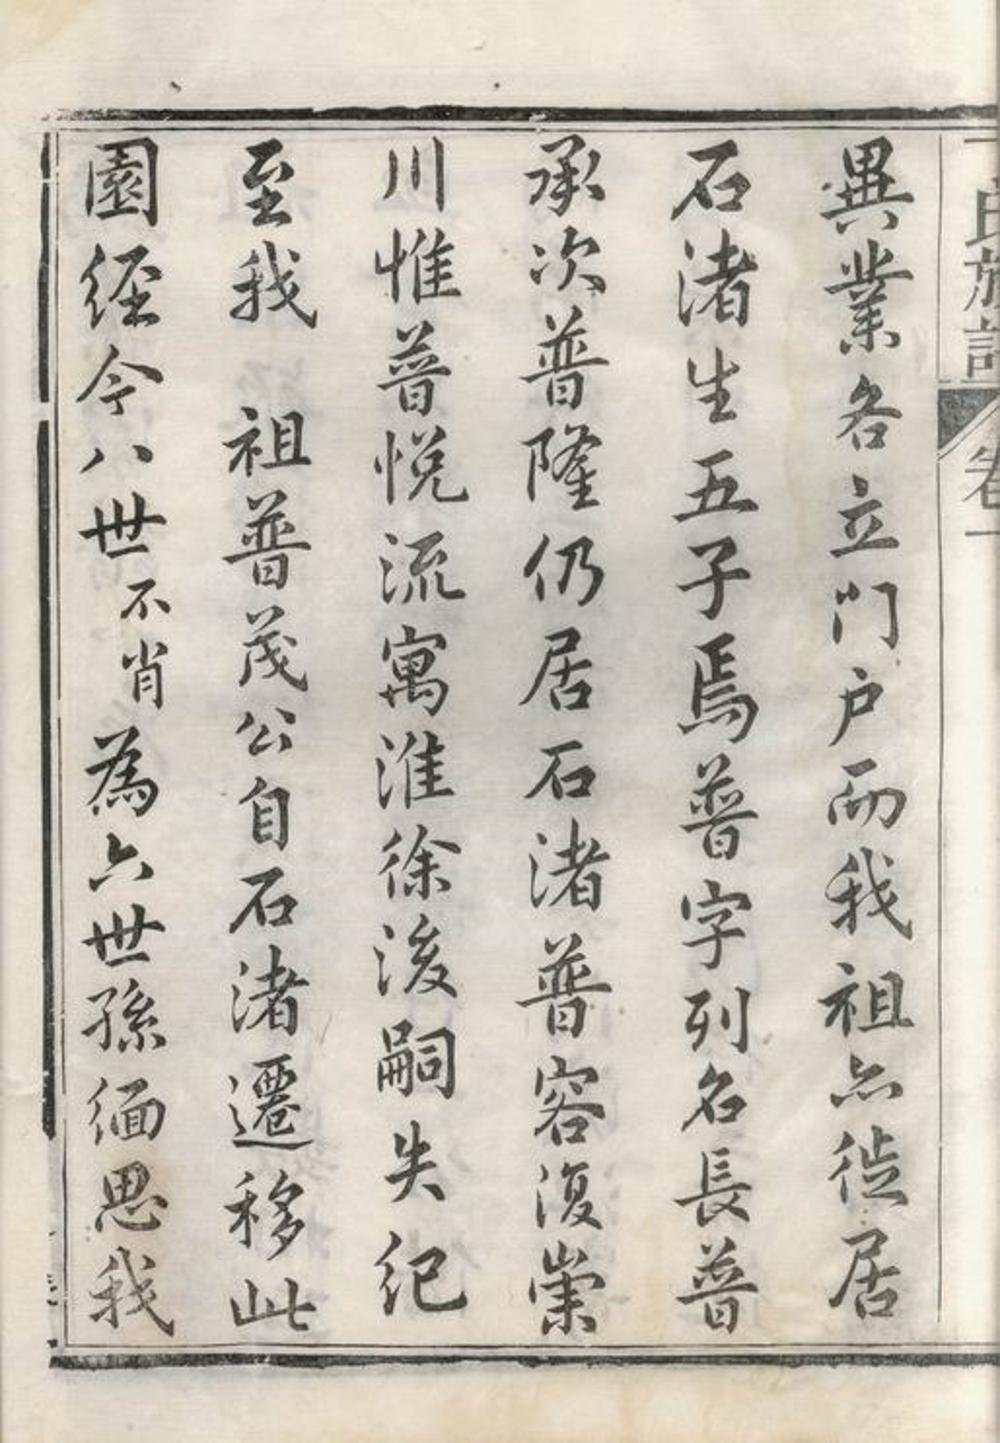 氏族譜 卷一
異業各立門户而我祖亦徙居
石渚生五子焉普字列名長普
承次普隆仍居石渚普容復崇
川惟普悦流寓淮徐後嗣失紀
至我 祖普茂公自石渚遷移此
園經今八世不肖為六世孫緬思我